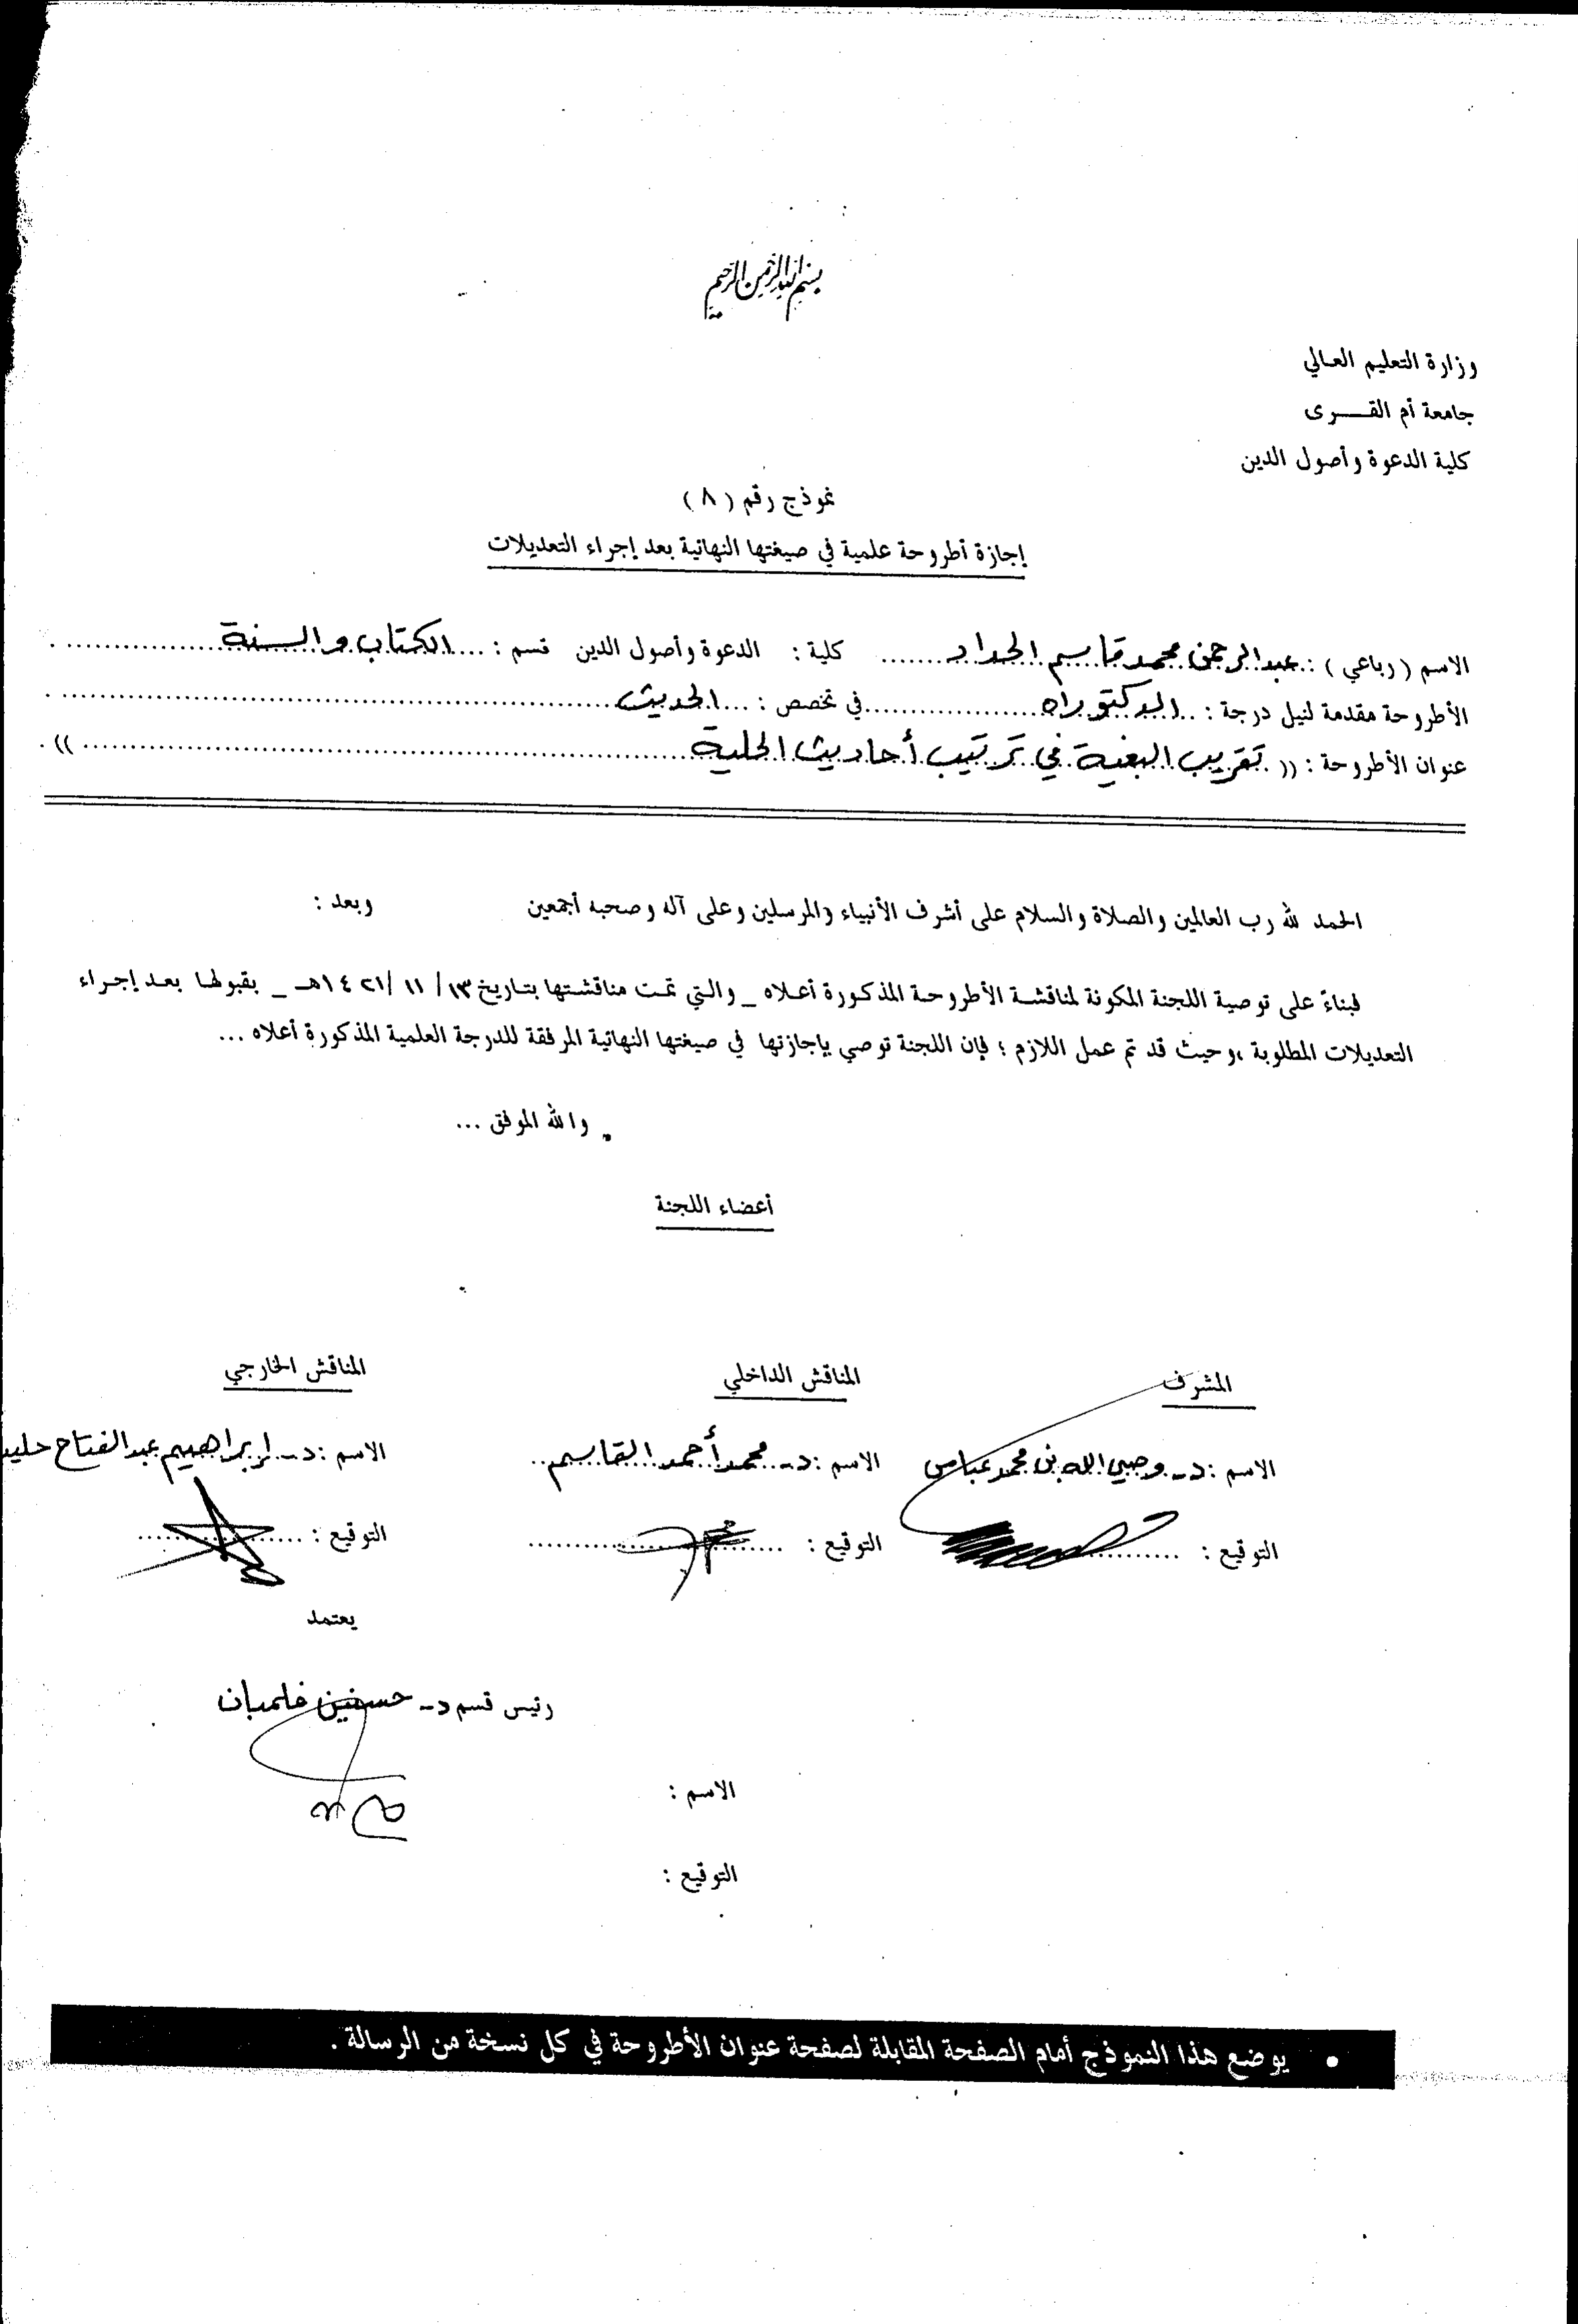 بسم الله الرحمن الرحيم
وزارة التعليم العالي
جامعة أم القـــرى
كلية الدعوة وأصول الدين
نموذج رقم ( ٨ )
إجازة أطروحة علمية في صيغتها النهائية بعد إجراء التعديلات
الاسم ( رباعي ) : عبدالرحمن محمد قاسم الحداد كلية : الدعوة وأصول الدين قسم : الكتاب والسنة
الأطروحة مقدمة لنيل درجة : الدكتوراه في تخصص : الحديث
عنوان الأطروحة : (( تقريب البغية في ترتيب أحاديث الحلية )) .
الحمد لله رب العالمين والصلاة والسلام على أشرف الأنبياء والمرسلين وعلى آله وصحبه أجمعين وبعد :
فبناءً على توصية اللجنة المكونة لمناقشة الأطروحة المذكورة أعلاه _ والتي تمت مناقشتها بتاريخ ١٣/ ١١ /١٤٢١هـ _ بقبولها بعد إجراء
التعديلات المطلوبة ، وحيث قد تم عمل اللازم ؛ فإن اللجنة توصي بإجازتها في صيغتها النهائية المرفقة للدرجة العلمية المذكورة أعلاه ...
والله الموفق ...
أعضاء اللجنة
المشرف المناقش الداخلي المناقش الخارجي
الاسم : د- وصي الله بن محمد عباس الاسم : د- محمد أحمد القاسم الاسم : د- إبراهيم عبدالفتاح
التوقيع : التوقيع : التوقيع :
يعتمد
رئيس قسم د- فلمبان
الاسم :
التوقيع :
• يوضع هذا النموذج أمام الصفحة المقابلة لصفحة عنوان الأطروحة في كل نسخة من الرسالة .